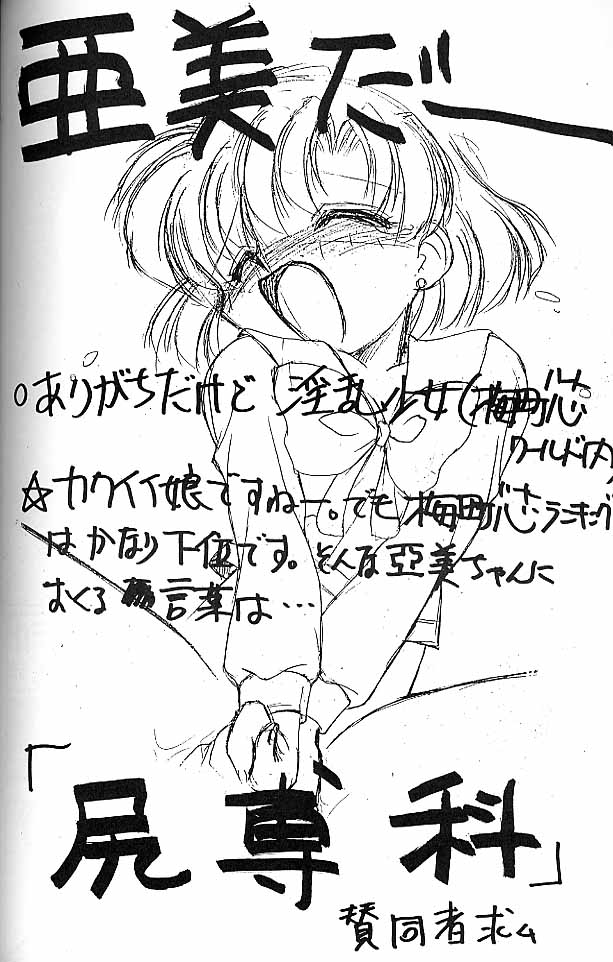 亜美だー
○ありがちだけど 淫乱少女(梅田心
ワールド内)
☆カワイイ娘ですねー。でも梅田心ランキング
はかなり下位です。そんな亜美ちゃんに
おくる言葉は…
「尻専科」
賛同者求ム